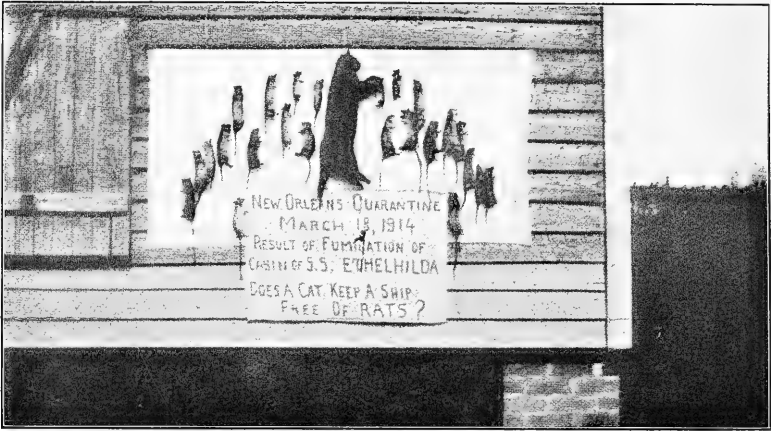 NEW ORLEANS QUARANTINE
MARCH 18, 1914
RESULT OF FUMIGATION OF
CABIN OF S.S. ETHELHILDA
DOES A CAT KEEP A SHIP
FREE OF RATS?